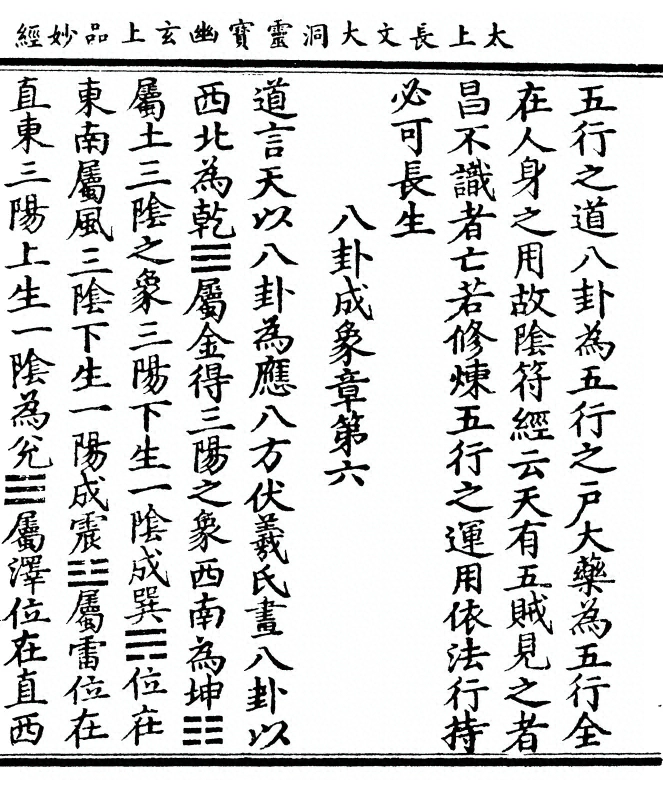 太上長文大洞靈寶幽玄上品妙經
五行之道八卦為五行之戸大藥為五行全
在人身之用故陰符經云天有五賊見之者
昌不識者亡若修煉五行之運用依法行持
必可長生
八卦成象章第六
道言天以八卦為應八方伏羲氏畫八卦以
西北為乾☰屬金得三陽之象西南為坤☷
屬土三陰之象三陽下生一陰成巽☴位在
東南屬風三陰下生一陽成震☳屬雷位在
直東三陽上生一陰為兊☱屬澤位在直西